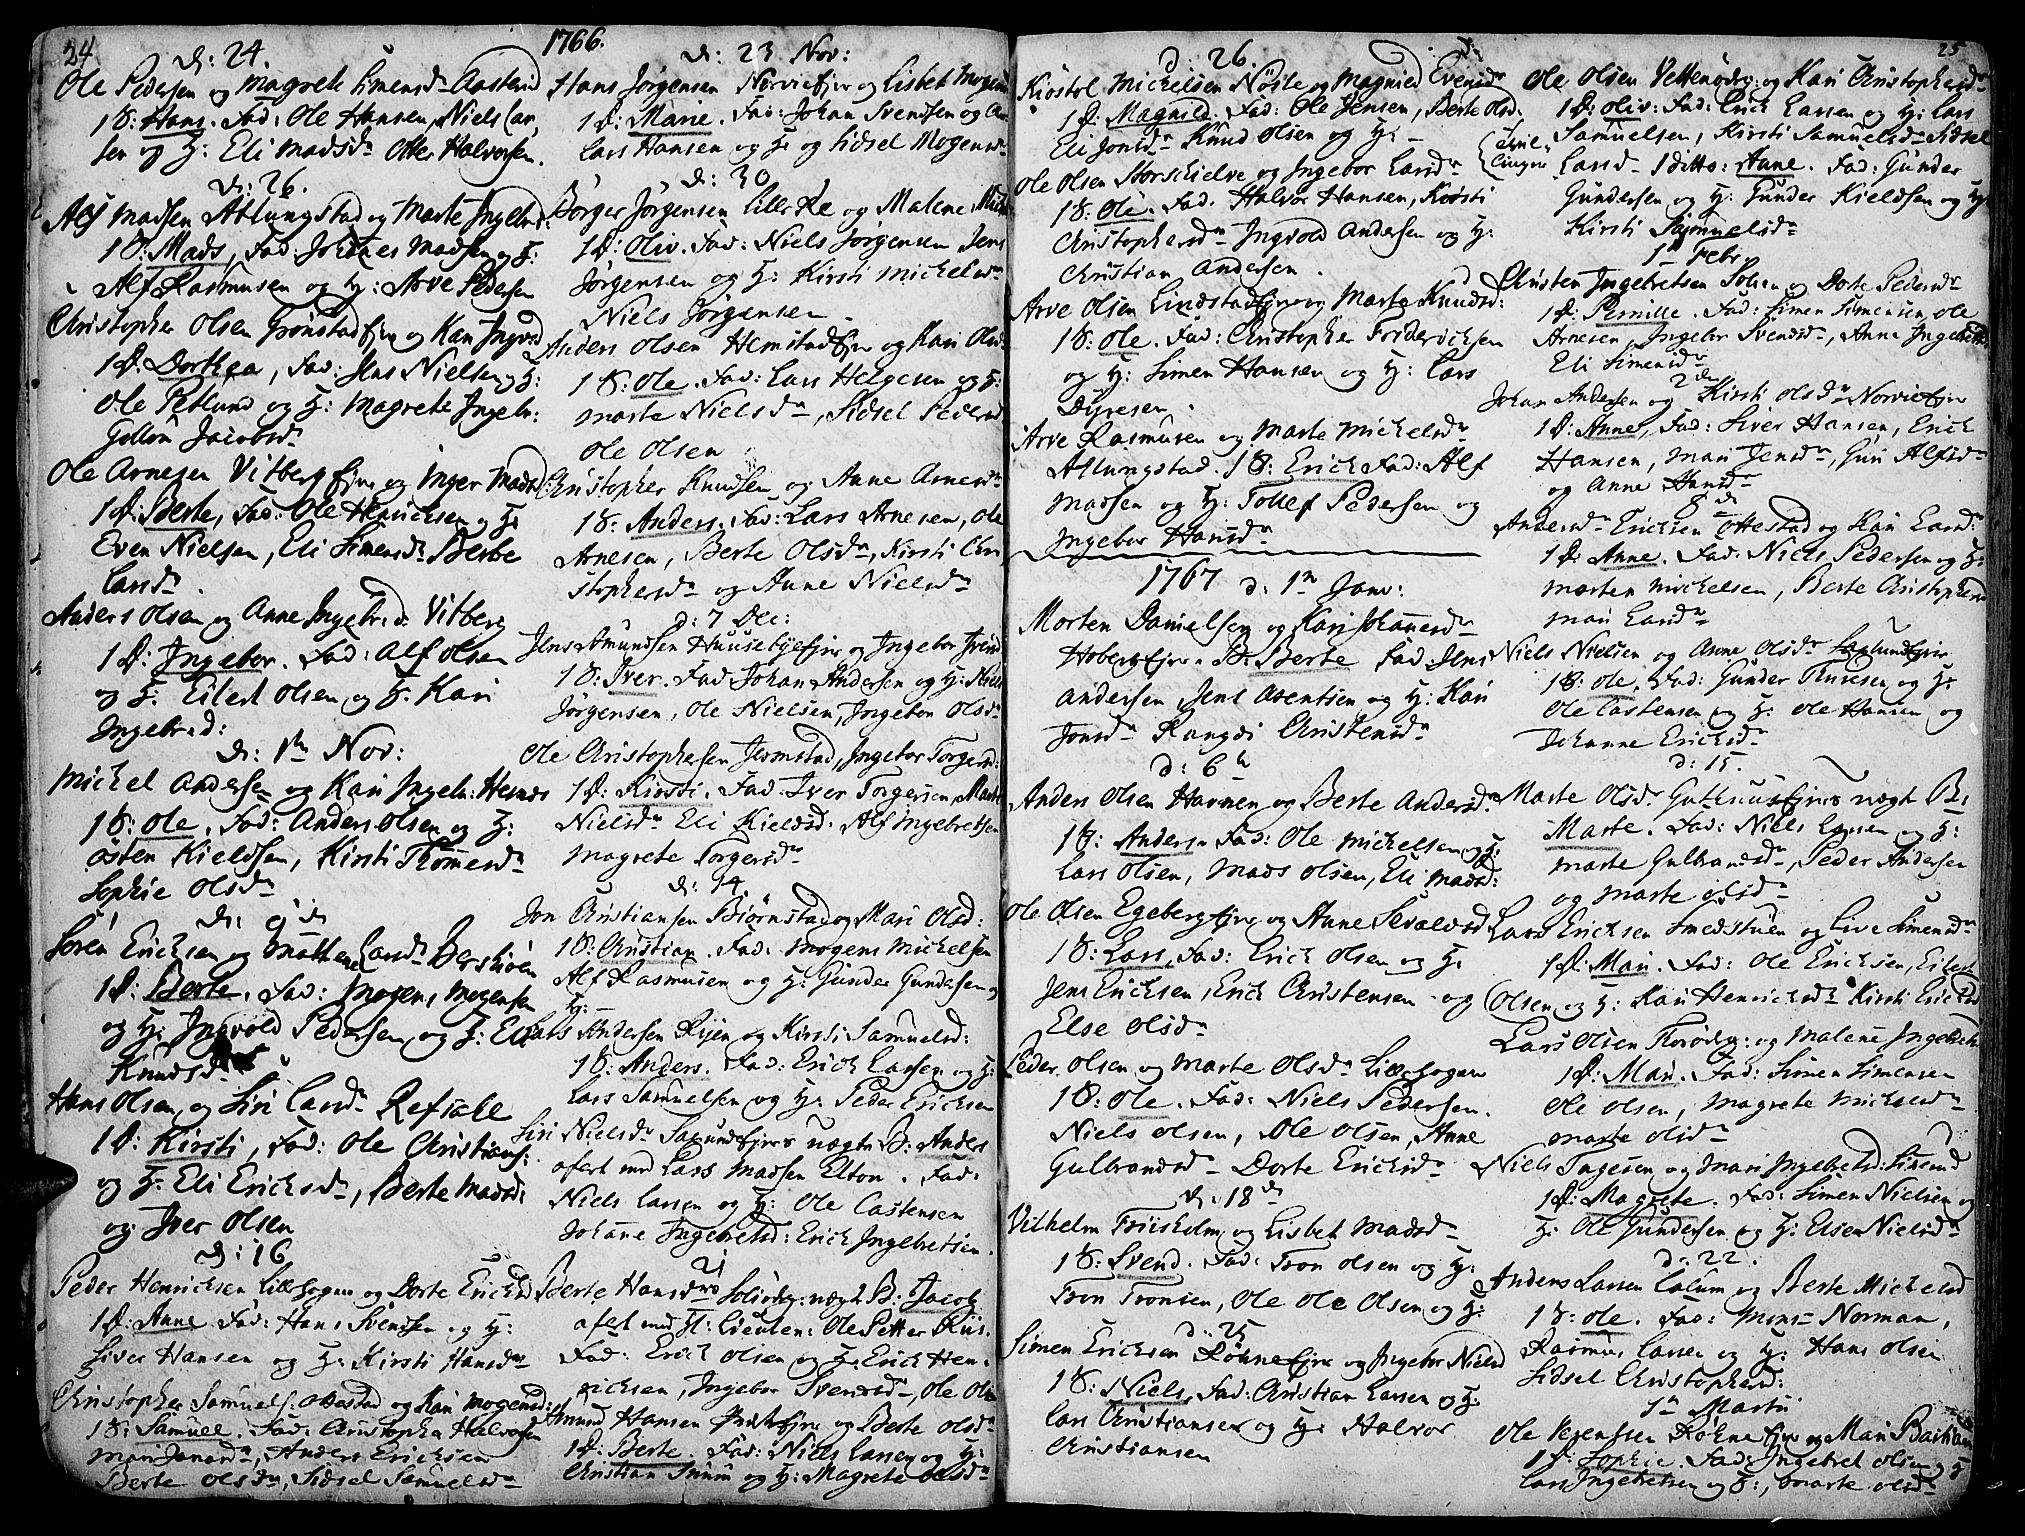 24
d: 24.
Ole Pedersen og Magrete Simensd. Aasterud
1 S: Hans. Fad: Ole Hansen, Niels Lar
sen og H: Eli Madsdr. Otter Halvorsen.
d: 26.
Alf Madsen Atlungstad og Marte Ingebrd:
1 S: Mads, Fad: Johanes Madsen og H:
Alf Rasmusen og H: Arve Pedersen
Christopher Olsen Grönstad Ejer og Kari Ingvold
1 D: Dorthea, Fad: Jens Nielsen og H:
Ole Petlund og H: Magrete Ingebr:
Jacobsdr
Ole Arnesen Vitberg Ejer og Inger Madsd:
1 D: Berte, Fad: Ole Henricksen og H:
Even Nielsen, Eli Simensdr: Berte
Larsdr.
Anders Olsen og Anne Ingebr:d. Vitberg
1 D: Ingebor. Fad: Alf Olsen
og H: Eilert Olsen og H. Kari
Ingebr:d:
d: 1te Nov:
Michel Andersen og Kari Ingebr: Hernes
1 S: Ole. Fad: Anders Olsen og H:
Östen Kieldsen, Kirsti Thomesdr
Sophie Olsdr
d: 9de
Sören Ericksen og Mattene Larsdr Berskoen
1 D: Berte. Fad: Mogens Mogensen
og H: Ingvold Pedersen og H: Eli
Knudsdr
Hans Olsen og Siri Larsdr Refsahl
1 D: Kirsti, Fad: Ole Christians:
og H: Eli Ericksdr, Berte Madsd:
og Iver Olsen
d: 16
Peder Henricksen Lillehogen og Dorte Erichsd
1 D: Anne Fad: Hans Svendsen og H:
Siver Hansen og H: Kirsti Hansdr
Christopher Samuels: Ottestad og Kari Mogensd:
1 S: Samuel. Fad: Christopher Halvorsen
Mari Jonsdr, Anders Ericksen
Berte Olsdr, Sidsel Samuelsdr
1766.
d: 23 Nov:
Hans Jörgensen Norvic Ejer og Lisbet Mogensd
1 D: Marie. Fad: Johan Svendsen og
Lars Hansen og H: og Sidsel Mogensdr
d: 30
Börger Jörgensen Lille Re og Malene
1 D: Oliv. Fad: Niels Jörgensen Jens
Jörgensen og H: Kirsti Michelsdr
Niels Jörgensen.
Anders Olsen Hemstad Ejer og Kari Olsd
1 S: Ole. Fad: Lars Helgesen og H:
Marte Nielsdr, Sidsel Pedersd
Ole Olsen
Christopher Knudsen og Anne Arnesdr
1 S: Anders. Fad: Lars Arnesen, Ole
Arnesen, Berte Olsdr, Kirsti Chri
stophersdr og Anne Nielsdr
d: 7 Dec:
Jens Amundsen Huusebye Ejer og Ingebor Iversd
1 S: Iver. Fad Johan Andersen og H: Niels
Jörgensen, Ole Nielsen, Ingebor Olsdr
Ole Christophersen Jesmstad, Ingebor Torgersd:
1 D: Kirsti. Fad: Iver Torgersen, Marte
Nielsdr Eli Kieldsd. Alf Ingebretsen
Magrete Torgersdr
d: 14.
Jon Christiansen Biörnstad og Mari Olsd:
1 S: Christian. Fad: Mogens Michelsen
Alf Rasmusen og H: Gunder Gundersen og
H: –
Lars Andersen Rijen og Kirsti Samuelsd:
1 S: Anders. Fad: Erich Larsen og H:
Lars Samuelsen og H: Peder Ericksen
Siri Nielsdr Saxund Ejer uægte B: Anders
aflet med Lars Madsen Elton. Fad:
Niels Larsen og H: Ole Castensen
Johane Ingebretsd: Erich Ingebretsen.
21
Berte Hansdr Solöde: uægt B: Jacob
aflet med H: Lieuten: Ole Petter Riis.
Fad: Erich Olsen og H: Erich Hen:
ricksen, Ingebor Svensdr, Ole Ols
Amund Hansen Ejer og Berte Olsdr
1 D: Berte. Fad: Niels Larsen og H:
Christian og H: Magrete Olsdr
d: 26.
Kiöstol Mickelsen Nöste og Magnild Evensdr
1 D: Magnild. Fad: Ole Jensen, Berte Olsd:
Eli Jonsdr Knud Olsen og H: –
Ole Olsen Storskielve og Ingebor Larsdr
1 S: Ole. Fad: Halvor Hansen, Kirsti
Christophersdr Ingvold Andersen og H:
Christian Andersen.
Arve Olsen Lindstad Ejer og Marte Knudsd:
1 S: Ole. Fad: Christopher Friderichsen
og H: Simen Hansen og H: Lars
Dyresen.
Arve Rasmusen og Marte Michelsdr
Atlungstad. 1 S: Erich Fad: Alf
Madsen og H: Tollef Pedersen og
Ingebor Hansdr
1767 d: 1te Janv:
Morten Danielsen og Kari Johanesdr
Hoberg Ejer. D: Berte Fad Jens
Andersen, Jens Arentsen og H: Kari
Jonsdr Rangdi Christensdr
d: 6te
Anders Olsen Havnen og Berte Andersdr
1 S: Anders. Fad: Ole Mickelsen og H:
Lars Olsen, Mads Olsen, Eli Madsd:
Ole Olsen Egeberg Ejer og Anne Sevaldsd
1 S: Lars, Fad: Erich Olsen og H:
Jens Ericksen, Erich Christensen og
Else Olsdr
Peder Olsen og Marte Olsdr Lillehogen
1 S: Ole. Fad: Niels Pedersen.
Niels Olsen, Ole Olsen, Anne
Gulbrandsdr Dorte Ericksdr
d: 18de
Vilhelm Friisholm og Lisbet Madsdr
1 S: Svend. Fad: Tron Olsen og H:
Tron Tronsen, Ole Ole Olsen og H:
d: 25
Simen Ericksen Röhne Ejer og Ingebor Nielsd
1 S: Niels, Fad: Christian Larsen og H:
Lars Christiansen og H: Halvor
Christiansen
25
Ole Olsen Vettenödeg: og Kari Christophersdr
Tvil-
linger
1 D: Oliv: Fad: Erich Larsen og H: Lars
Samuelsen, Kirsti Samuelsdr Sidsel
Larsdr 1 ditto: Anne. Fad: Gunder
Gundersen og H: Gunder Kieldsen og H:
Kirsti Samuelsdr
1te Febr
Christen Ingebretsen Solsen og Dorte Pedersdr
1 D: Pernille. Fad: Simen Simensen, Ole
Arnesen, Ingebor Svendsdr, Anne Ingebretsd
Eli Simensdr
2de
Johan Andersen og Kirsti Olsdr Norvic Ejer
1 D: Anne, Fad: Siver Hansen, Erich
Hansen, Mari Jensdr, Guri Alfsdr
og Anne Hansdr
8de
Anders Ericksen Ottestad og Kari Larsdr
1 D: Anne. Fad: Niels Pedersen og H:
Morten Mickelsen, Berte Christophersd
Mari Larsdr
Niels Nielsen og Anne Olsdr Saxlund Ejer
1 S: Ole. Fad: Gunder Thuresen og H:
Ole Castensen og H: Ole Hansen og
Johanne Ericksdr
d: 15.
Marte Olsdr Guthuus Ejer uægte B:
Marte. Fad: Niels Larsen og H:
Marte Gulbrandsdr, Peder Andersen
og Marte Olsdr
Lars Ericksen Smedstuen og Live Simensdr
1 D: Mari. Fad: Ole Ericksen, Eilert
Olsen og H: Kari Henricksdr Kirsti Ericksd
Lars Olsen Torödeg: og Malene Ingebretsd
1 D: Mari. Fad: Simen Simensen
Ole Olsen, Magrete Mickelsdr
Marte Olsdr
Niels Tagesen og Mari Ingebretsd: Simensd
1 D: Magrete. Fad: Simen Nielsen og
H: Ole Gundersen og H: Elsen Nielsdr
d: 22.
Anders Larsen Calum og Berte Michelsd
1 S: Ole. Fad: Mons Norman,
Rasmus Larsen og H: Hans Olsen
Sidsel Christophersd:
1te Martii
Ole Röhne Ejer og Mari Bastians
1 D: Sophie. Fad: Ingebret Olsen og H
Lars Ingebretsen og H:, Marte Olsdr